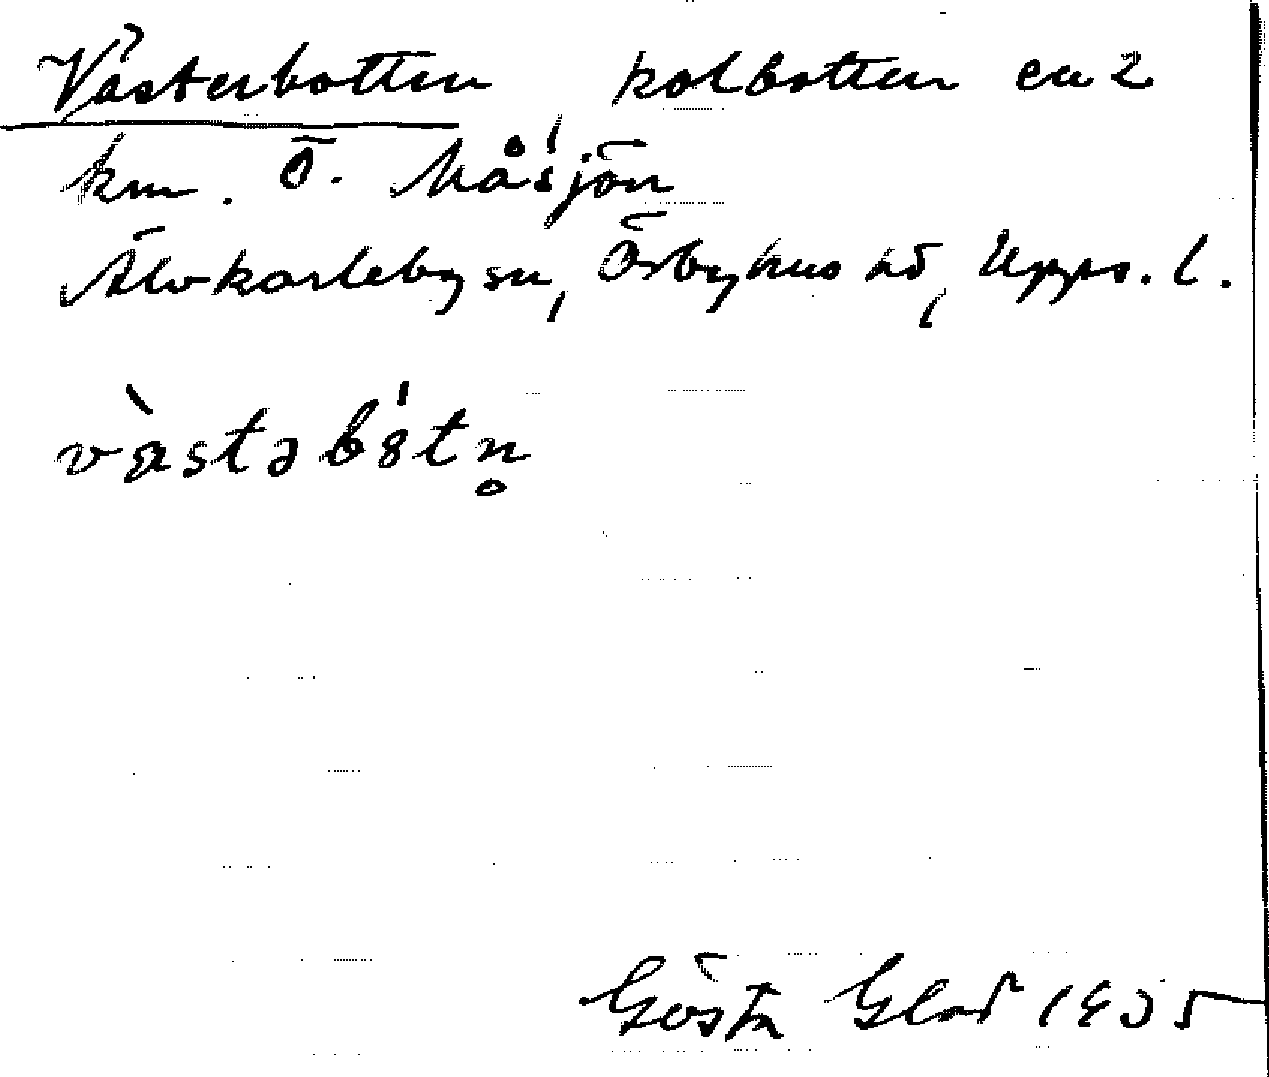 Västerbotten, kolbotten ca 2
km. Ö. Måsjön
Älvkarleby sn, Örbyhus hd, Upps. l.
vàstəbòtn̥
Gösta Glad 1935